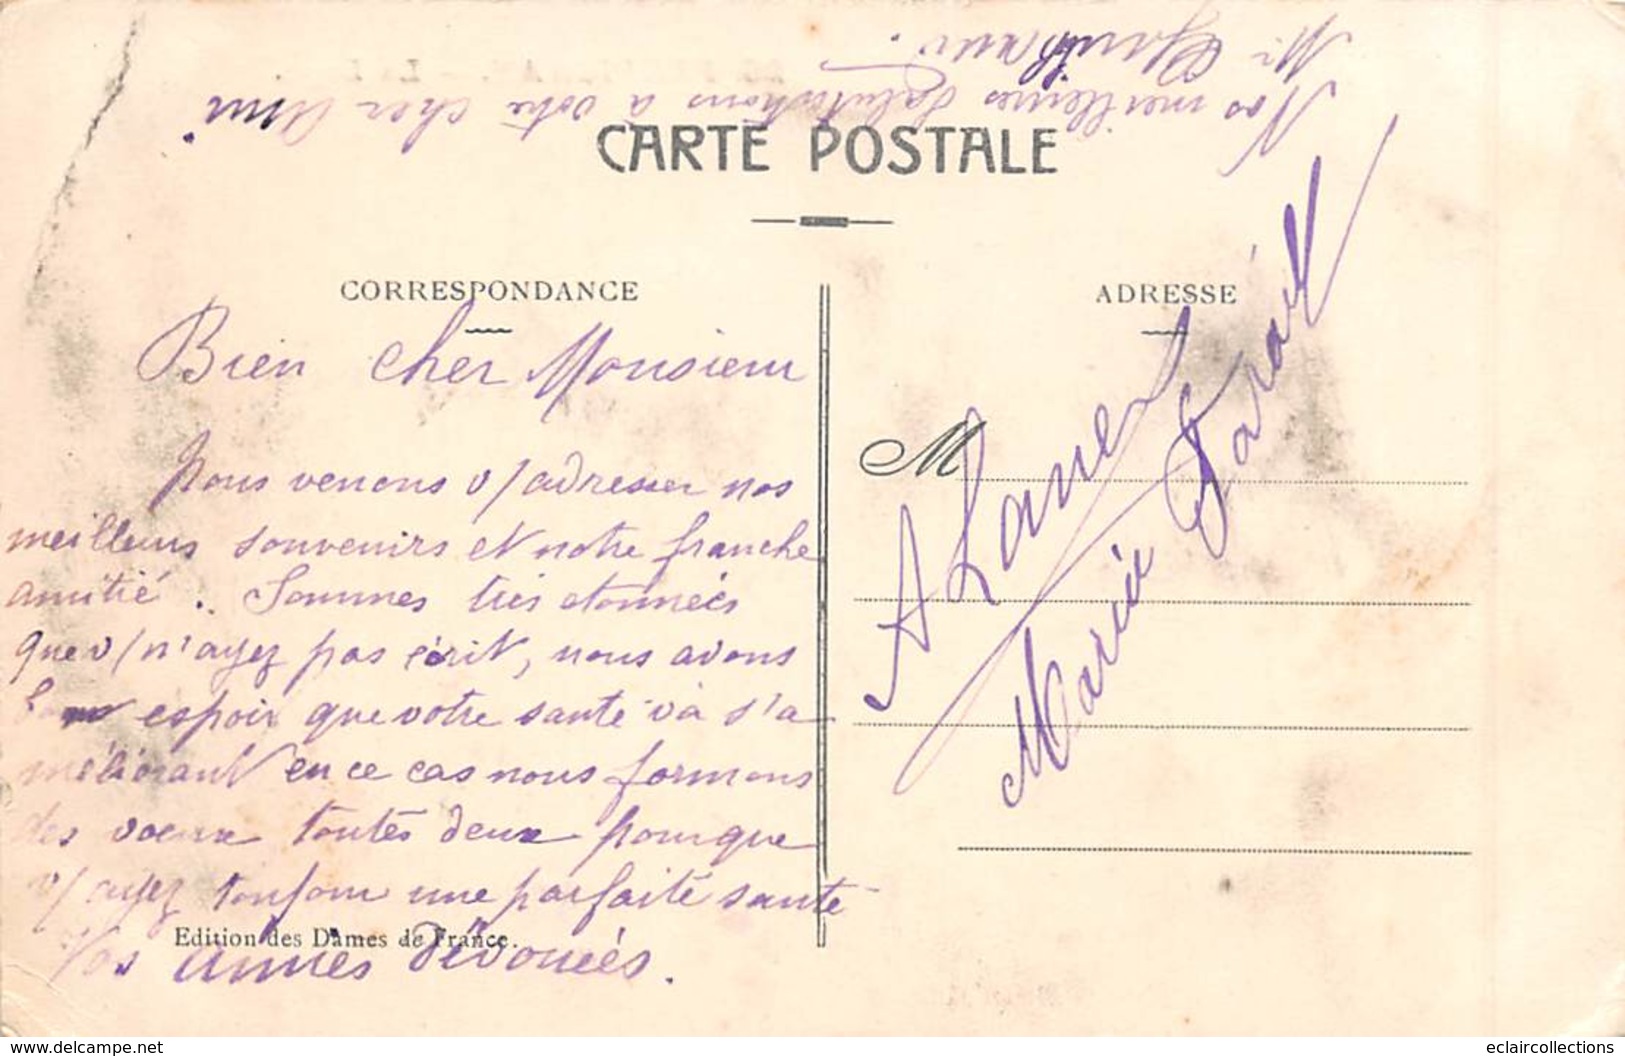 Nos meilleures Salutations à votre cher ami
Mr
CARTE POSTALE
CORRESPONDANCE
ADRESSE
Bien cher Monsieur
Nous venons v/adresser nos
meilleurs souvenirs et notre franche
amitié. Sommes très étonnées
que v/n'ayez pas écrit, nous avons
espoir que votre santé va s'a
méliorant en ce cas nous formons
des voeux toutes deux pourque
v/ayez toujour une parfaite santé
Vos amies dévouées.
Edition des Dames de France.
M
A
Marie
delcampe.net
eclaircollections